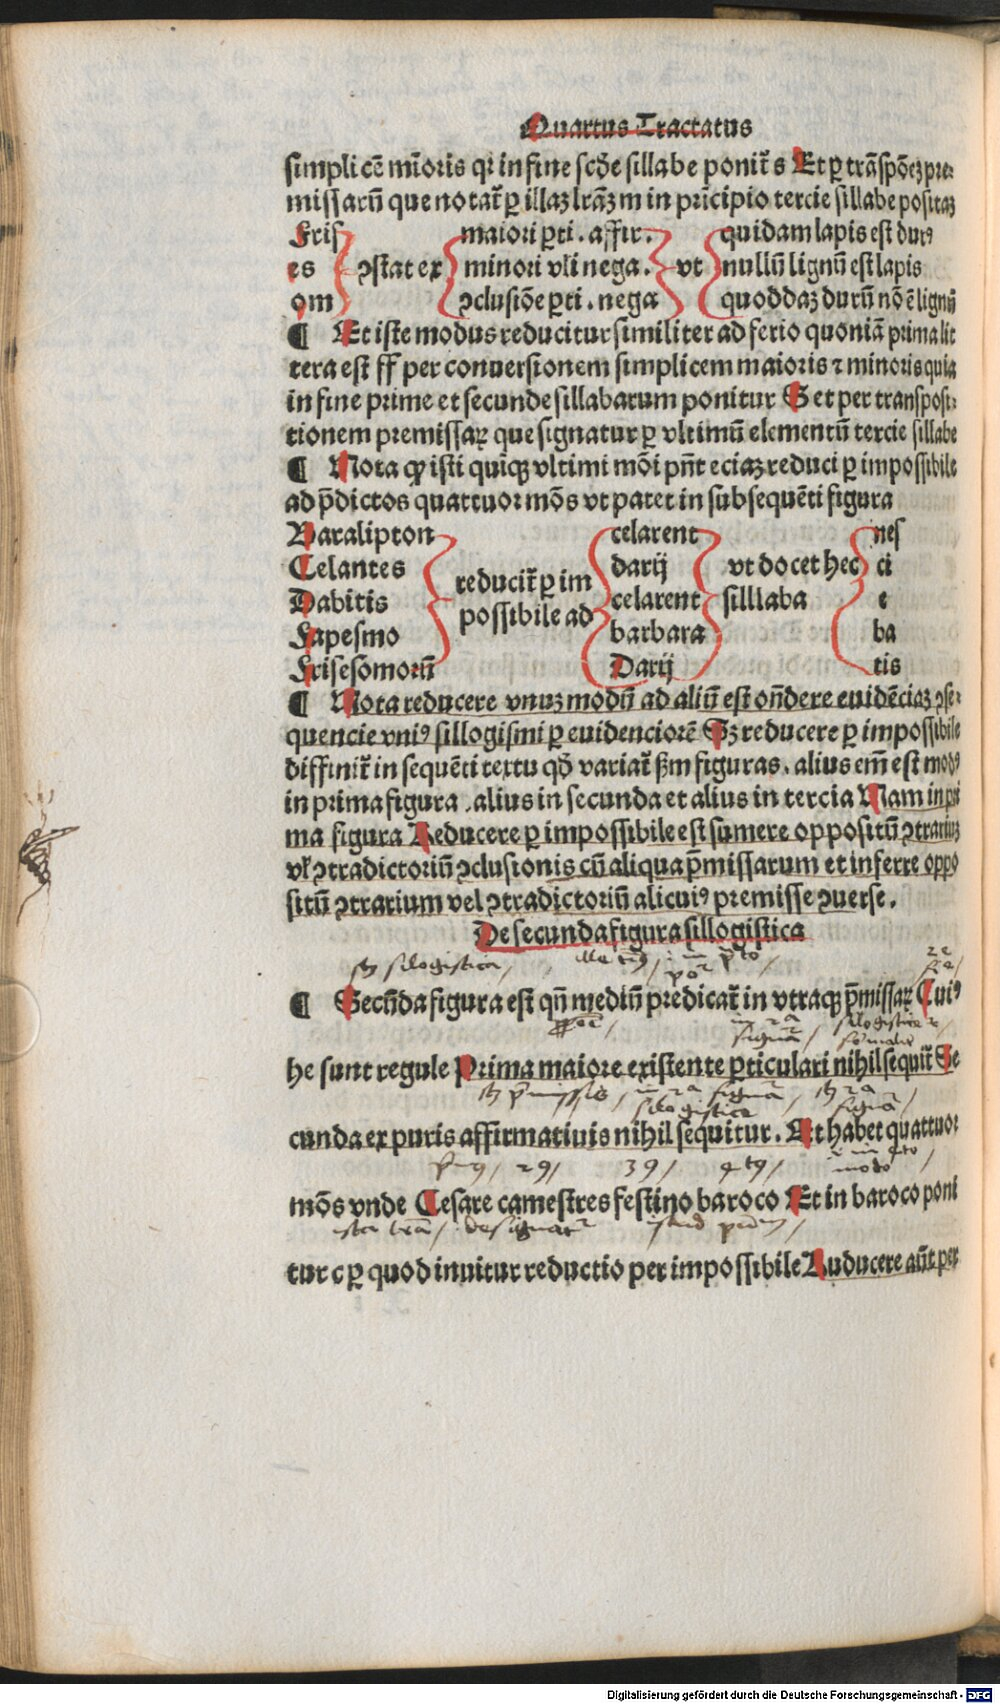 Quartus Tractatus
simplicē mīoris qꝛ in fine scd̄e sillabe ponit̄ s Et ꝑ trāspōeꝫ pre⸗
missarū que notat̄ ꝑ illaꝫ lrāꝫ m in prīcipio tercie sillabe positaꝫ
Fris maiori ꝑti. affir. quidam lapis est durꝰ
es ꝯstat ex minori vli nega. vt nullū lignū est lapis
om ꝯclusiōe ꝑti. nega quoddaꝫ durū nō ē lignū
¶ Et iste modus reducitur similiter ad ferio quoniā prima lit
tera est ff per conuersionem simplicem maioris ⁊ minoris quia
in fine prime et secunde sillabarum ponitur S et per transposi⸗
tionem premissaꝝ que signatur ꝑ vltimū elementū tercie sillabe
¶ Nota ꝙ isti quiqꝫ vltimi mōi pn̄t eciaꝫ reduci ꝑ impossibile
ad p̄dictos quattuor mōs vt patet in subsequēti figura
Baralipton celarent nes
Celantes reducit̄ ꝑ im darij vt docet hec ci
Dabitis possibile ad celarent silllaba t
Fapesmo barbara ba
Frisesomoꝝ Darij tis
¶ Nota reducere vnuꝫ modū ad aliū est on̄dere euidēciaꝫ ꝯse⸗
quencie vniꝰ sillogismi ꝑ euidenciorē Sꝫ reducere ꝑ impossibile
diffinit̄ in sequēti textu qd̄ variat̄ ẜm figuras. alius em̄ est modꝰ
in prima figura. alius in secunda et alius in tercia Nam in pri
ma figura Reducere ꝑ impossibile est sumere oppositū ꝯtrariuꝫ
vĺ ꝯtradictoriū ꝯclusionis cū aliqua p̄missarum et inferre oppo
sitū ꝯtrarium vel ꝯtradictoriū alicuiꝰ premisse ꝯuerse.
De secunda figura sillogistica
silogistica
¶ Secūda figura est qn̄ mediū predicat̄ in vtraqꝫ p̄missaꝝ Cuiꝰ
he sunt regule Prima maiore existente ꝑticulari nihil sequit̄ Se
silogistica
cunda ex puris affirmatiuis nihil sequitur. Et habet quattuor
mōs vnde Cesare camestres festino baroco Et in baroco poni
tur c ꝑ quod inuitur reductio per impossibile Ruducere aūt per
Digitalisierung gefördert durch die Deutsche Forschungsgemeinschaft - DFG